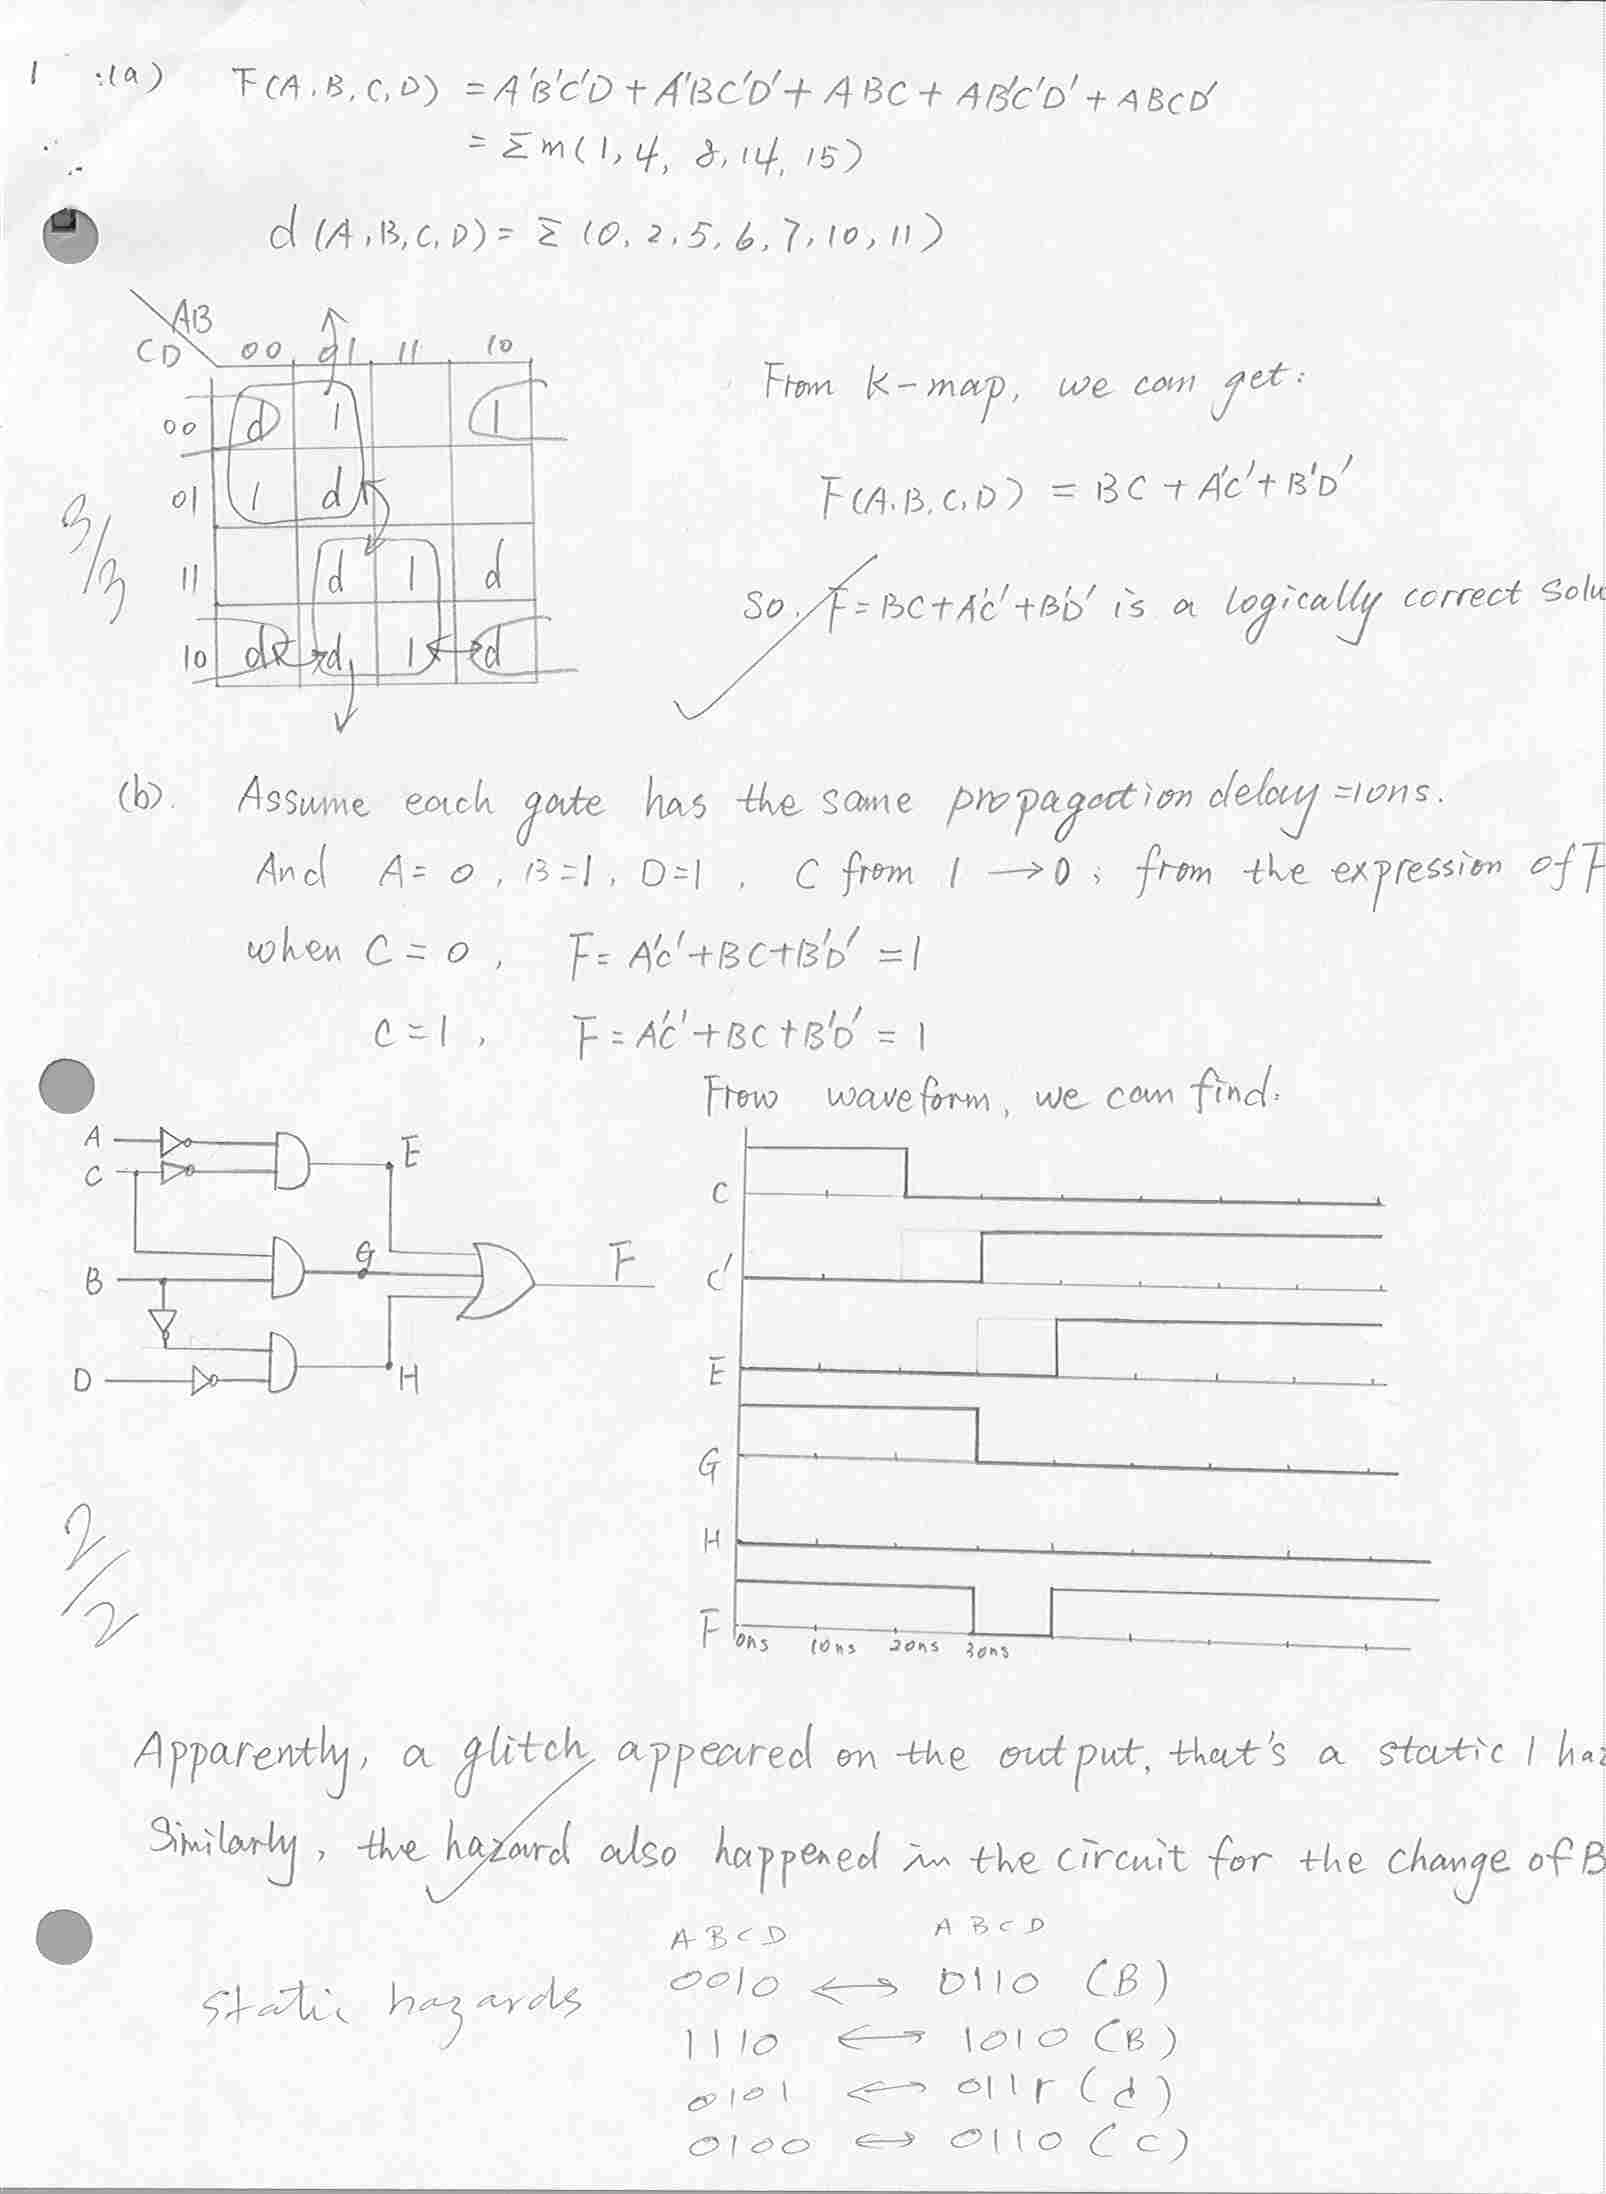 1 :(a) F(A,B,C,D) = A'B'C'D + A'BC'D' + ABC + AB'C'D' + ABCD'
= Σm(1,4, 8,14, 15)
d(A,B,C,D) = Σ(0,2,5,6,7,10,11)
AB
CD 00 01 11 10
00 d 1 1
01 1 d
11 d 1 d
10 d d 1 d
3/3
From K-map, we can get:
F(A,B,C,D) = BC + A'C' + B'D'
So, F = BC + A'C' + B'D' is a logically correct solu
(b). Assume each gate has the same propagation delay = 10ns.
And A = 0, B = 1, D = 1, C from 1 → 0; from the expression of F
when C = 0, F = A'C' + BC + B'D' = 1
C = 1, F = A'C' + BC + B'D' = 1
From waveform, we can find:
A
C
B
D
E
G
H
F
C
C'
E
G
H
F
0ns 10ns 20ns 30ns
2/2
Apparently, a glitch appeared on the output, that's a static 1 haz
Similarly, the hazard also happened in the circuit for the change of B
ABCD ABCD
static hazards 0010 ↔ 0110 (B)
1110 ↔ 1010 (B)
0101 ↔ 0111 (d)
0100 ↔ 0110 (C)